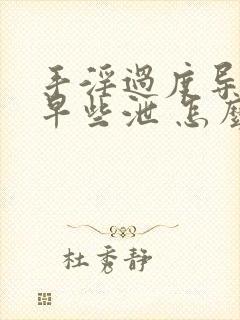 手淫過度导
早些泄 怎麼
杜秀静